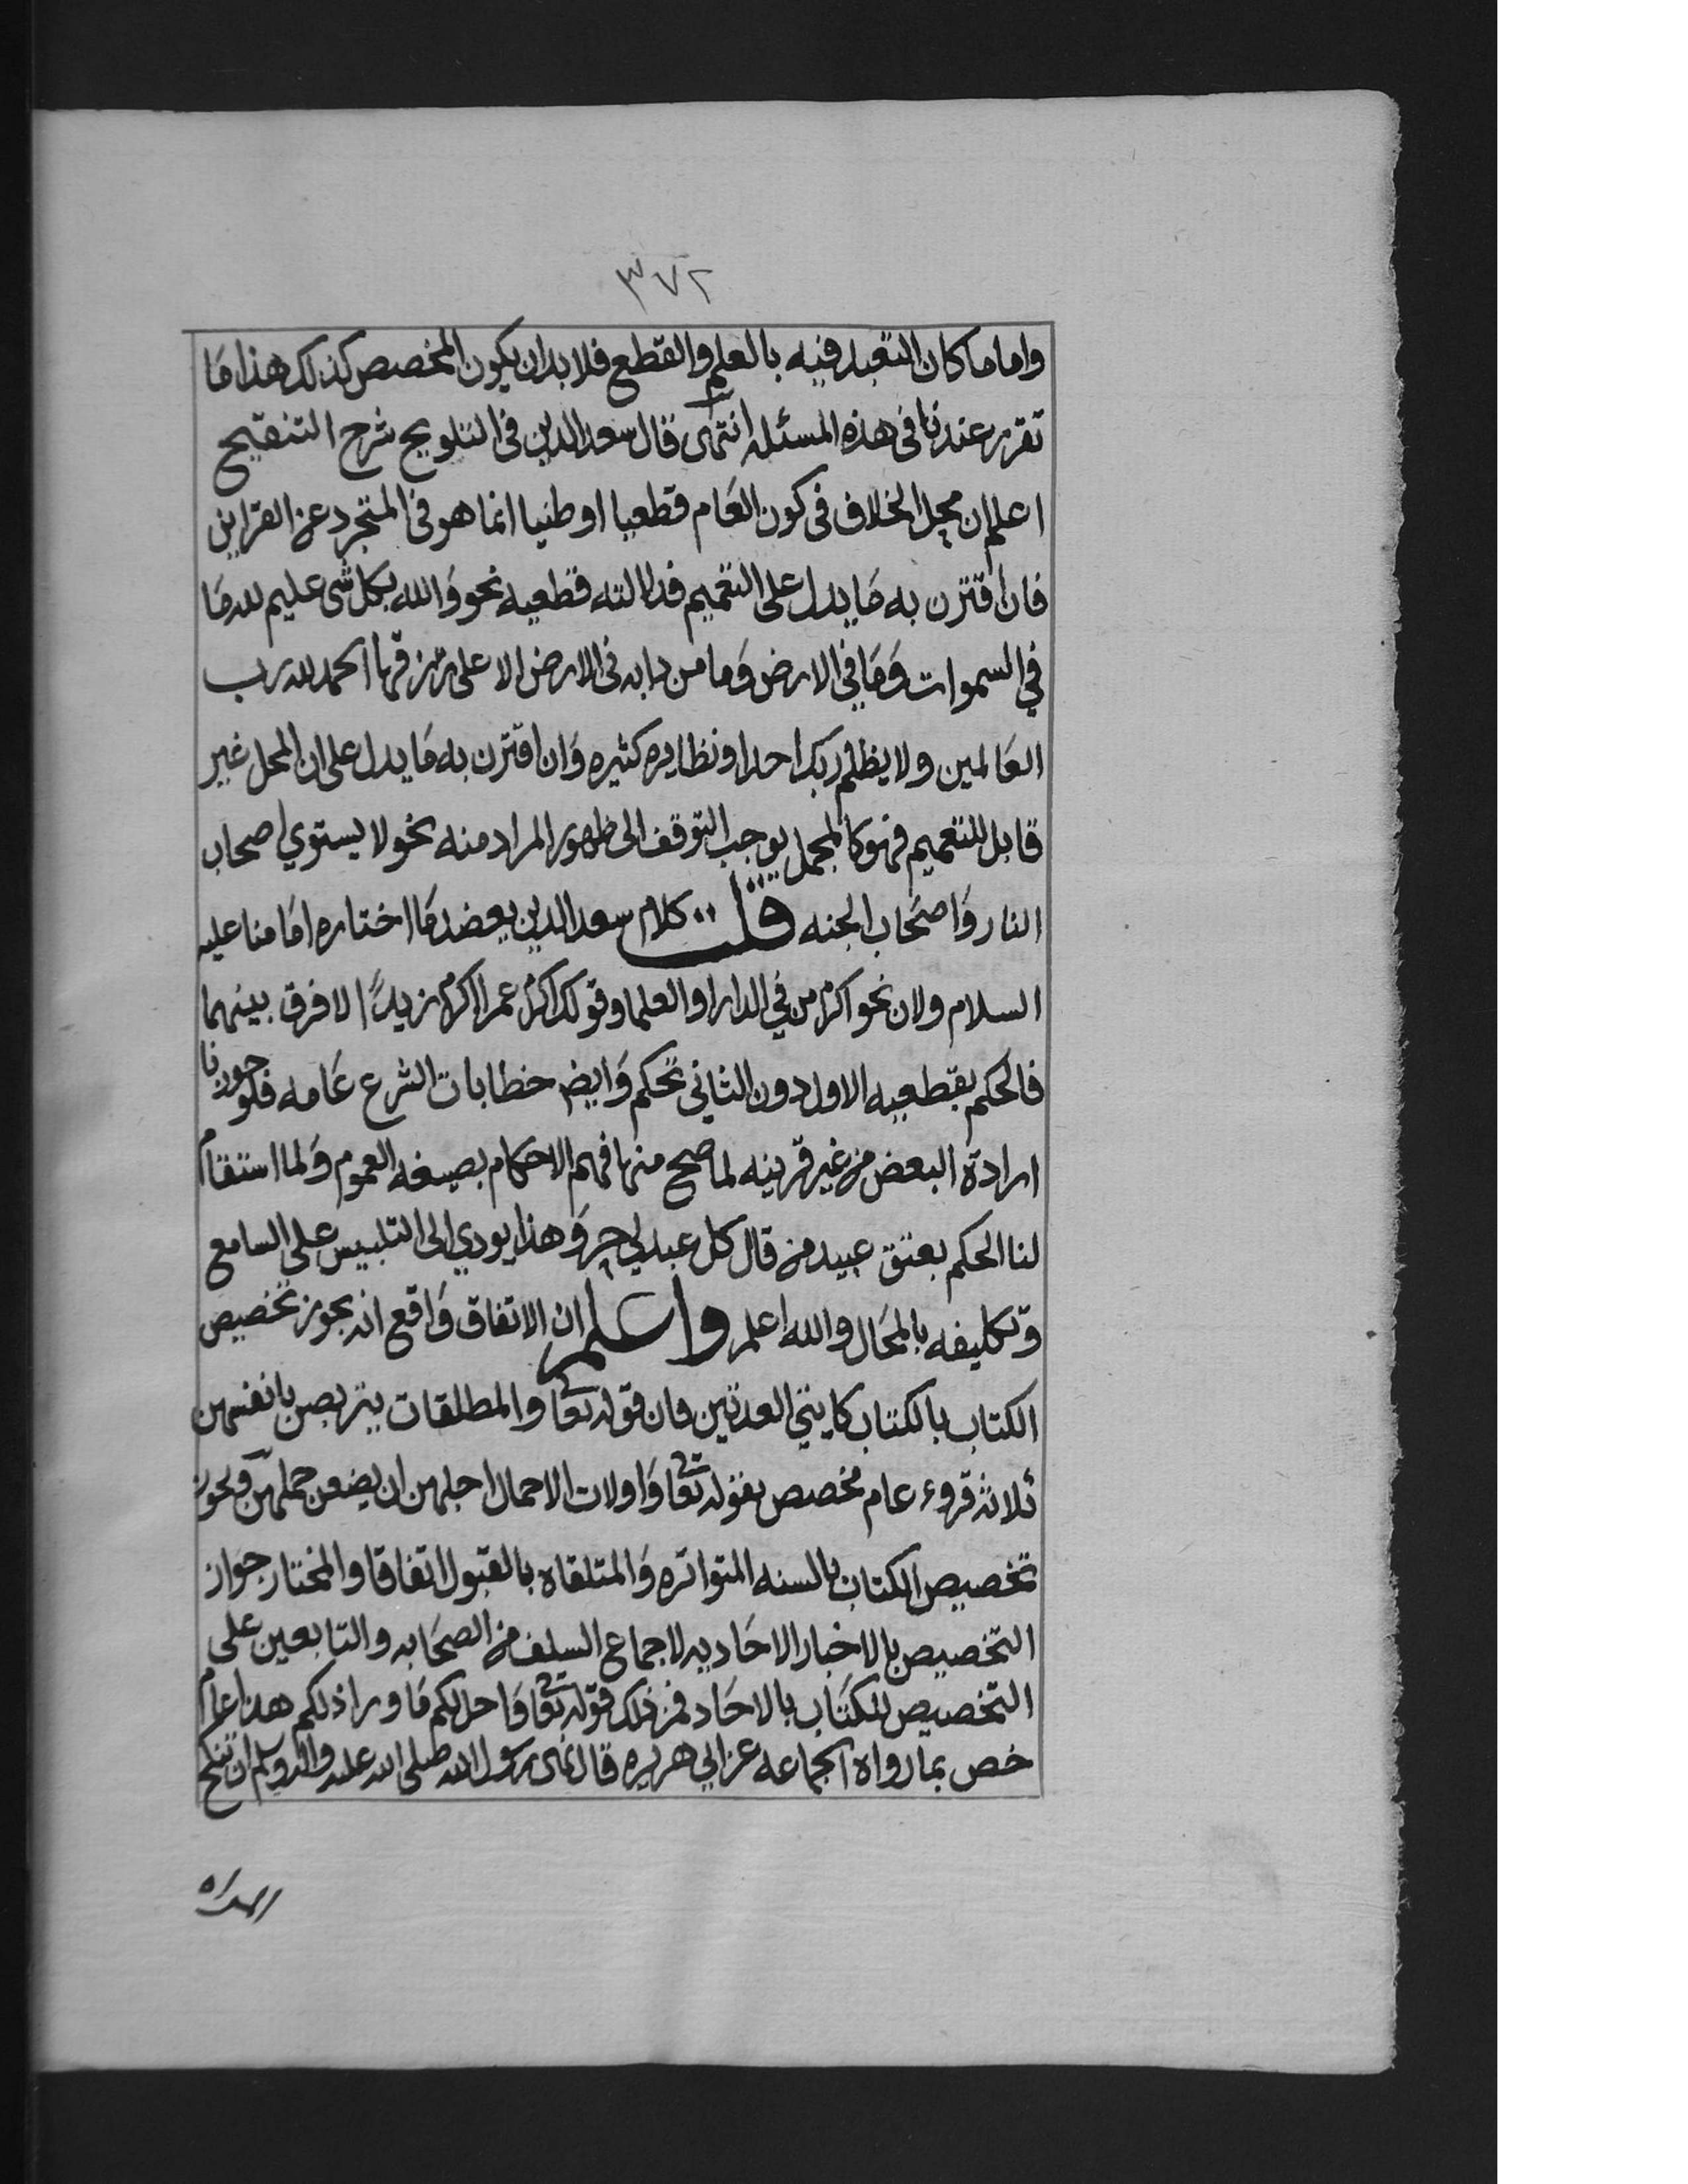 ٣٧٢
واما ما كان التعبد فيه بالعلم والقطع فلا بد ان يكون المخصص كذلك هذا ما
تقرر عندنا في هذه المسئله انتهى قال سعد الدين في التلويح شرح التنقيح
اعلم ان محل الخلاف في كون العام قطعيا او ظنيا انما هو في المتجرد عن القراين
فان اقترن به ما يدل على التعميم فدلالته قطعيه نحو والله بكل شى عليم لله ما
في السموات وما في الارض وما من دابه في الارض الا على رزقها الحمد لله رب
العالمين ولا يظلم ربك احدا ونظايره كثيره وان اقترن به ما يدل على ان المحل غير
قابل للتعميم فهو كالمجمل يوجب التوقف الى ظهور المراد منه نحو لا يستوي اصحاب
النار واصحاب الجنه قلت كلام سعد الدين يعضد ما اختاره امامنا عليه
السلام ولان نحو اكرم من في الدار او العلما وقولك اكرم عمرا اكرم زيدًا لا فرق بينهما
فالحكم بقطعيه الاول دون الثاني تحكم وايض خطابات الشرع عامه فلو جوزنا
ارادة البعض من غير قرينه لما صح منها فهم الاحكام بصيغه العموم ولما استقام
لنا الحكم بعتق عبيد من قال كل عبد لي حر وهذا يودي الى التلبيس على السامع
وتكليفه بالمحال والله اعلم واعلم ان الاتفاق واقع انه يجوز تخصيص
الكتاب بالكتاب كايتي العدتين فان قوله تعا والمطلقات يتربصن بانفسهن
ثلاثه قروء عام مخصص بقوله تعا واولات الاحمال اجلهن ان يضعن حملهن ويجوز
تخصيص الكتاب بالسنه المتواتره والمتلقاه بالقبول اتفاقا والمختار جواز
التخصيص بالاخبار الاحاديه لاجماع السلف من الصحابه والتابعين على
التخصيص للكتاب بالاحاد فمن ذلك قوله تعا واحل لكم ما ورا ذلكم هذا عام
خص بما رواه الجماعه عن ابي هريره قال نهى رسول الله صلى الله عليه واله وسلم ان تنكح
المراه